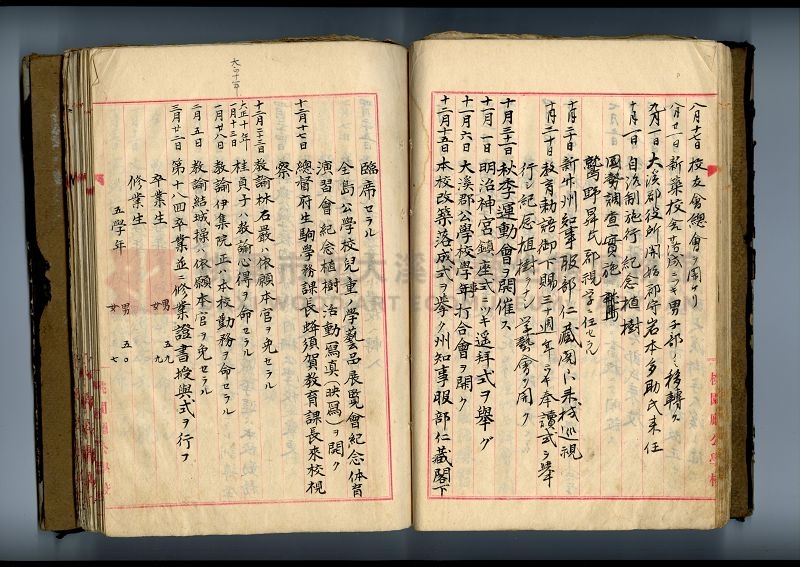 八月十七日 校友會總會ヲ開ケリ
八月廿一日 新築校舍落成ニツキ男子部ノミ移轉ス
九月一日 大溪郡役所開始郡守岩本多助氏來任
十月一日 自治制施行ニ紀念植樹
國勢調查實施
鷲野昇氏郡視學ニ任セラル
十月二十日 新竹州知事服部仁藏閣下來校巡視
十月三十日 教育勅語御下賜三十週年ニツキ奉讀式ヲ舉
行シ紀念植樹ヲナシ學藝會ヲ開ク
十月三十一日 秋季運動會ヲ開催ス
十一月一日 明治神宮鎮座式ニツキ遥拜式ヲ舉グ
十一月六日 大溪郡公學校學年打合會ヲ開ク
十二月十五日 本校改築落成式ヲ舉ク州知事服部仁藏閣下
臨席セラル
全島公學校兒童學藝品展覽會紀念體育
演習會紀念植樹活動寫真(映寫)ヲ開ク
十二月十七日 總督府生駒學務課長蜂須賀教育課長來校視
察
十二月二十三日 教諭林石嚴ハ依願本官ヲ免セラル
大正十年
大正十年
一月十三日 桂貞子ハ教諭心得ヲ命セラル
一月廿八日 教諭伊集院正ハ本校勤務ヲ命セラル
二月五日 教諭結城操ハ依願本官ヲ免セラル
三月廿二日 第十八回卒業並ニ修業證書授與式ヲ行フ
卒業生 男 五九
女 九
修業生
五學年 男 五〇
女 七
桃園廳公學校